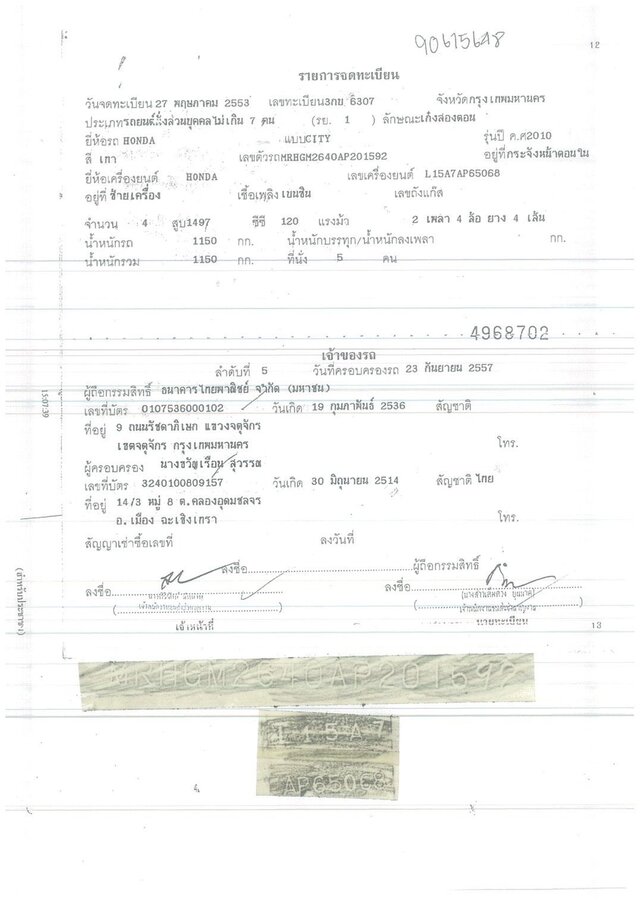 90615648
12
รายการจดทะเบียน
วันจดทะเบียน 27 พฤษภาคม 2553 เลขทะเบียน3กม 6307 จังหวัดกรุงเทพมหานคร
ประเภทรถยนต์นั่งส่วนบุคคลไม่เกิน 7 คน (รย. 1 ) ลักษณะเก๋งสองตอน
ยี่ห้อรถ HONDA แบบCITY รุ่นปี ค.ศ2010
สี เทา เลขตัวรถMRHGM2640AP201592 อยู่ที่กระจังหน้าตอนใน
ยี่ห้อเครื่องยนต์ HONDA เลขเครื่องยนต์ L15A7AP65068
อยู่ที่ ซ้ายเครื่อง เชื้อเพลิง เบนซิน เลขถังแก๊ส
จำนวน 4 สูบ1497 ซีซี 120 แรงม้า 2 เพลา 4 ล้อ ยาง 4 เส้น
น้ำหนักรถ 1150 กก. น้ำหนักบรรทุก/น้ำหนักลงเพลา กก.
น้ำหนักรวม 1150 กก. ที่นั่ง 5 คน
4968702
เจ้าของรถ
ลำดับที่ 5 วันที่ครอบครองรถ 23 กันยายน 2557
ผู้ถือกรรมสิทธิ์ ธนาคารไทยพาณิชย์ จำกัด (มหาชน)
เลขที่บัตร 0107536000102 วันเกิด 19 กุมภาพันธ์ 2536 สัญชาติ
ที่อยู่ 9 ถนนรัชดาภิเษก แขวงจตุจักร
เขตจตุจักร กรุงเทพมหานคร โทร.
ผู้ครอบครอง นางขวัญเรือน สุวรรณ
เลขที่บัตร 3240100809157 วันเกิด 30 มิถุนายน 2514 สัญชาติ ไทย
ที่อยู่ 14/3 หมู่ 8 ต.คลองอุดมชลจร
อ.เมือง ฉะเชิงเทรา โทร.
สัญญาเช่าซื้อเลขที่ ลงวันที่
ลงชื่อ ผู้ถือกรรมสิทธิ์
ลงชื่อ ลงชื่อ
เจ้าหน้าที่ นายทะเบียน
13
MRHGM2640AP201592
L15A7
AP65068